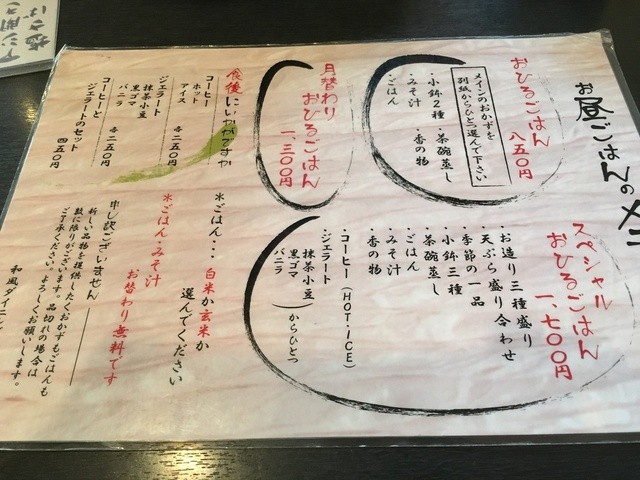 お昼ごはんのメニ
おひるごはん
八五〇円
メインのおかずを
別紙からひとつ選んで下さい
・小鉢2種 ・茶碗蒸し
・みそ汁 ・香の物
・ごはん
月替わり
おひるごはん
一、三〇〇円
食後にいかがですか
コーヒー
ホット
アイス
各二五〇円
ジェラート
抹茶小豆
黒ゴマ
バニラ
各二五〇円
コーヒーと
ジェラートのセット
四五〇円
スペシャル
おひるごはん
一、七〇〇円
・お造り三種盛り
・天ぷら盛り合わせ
・季節の一品
・小鉢三種
・茶碗蒸し
・ごはん
・みそ汁
・香の物
・コーヒー(HOT・ICE)
・ジェラート
抹茶小豆
黒ゴマ
バニラ
からひとつ
*ごはん・・・白米か玄米か
選んでください
*ごはん・みそ汁
お替わり無料です
申し訳ございません
新しい品物を提供したくおかずもごはんも
数に限りがございます。品切れの場合は
ご了承ください。よろしくお願いします。
和風ダイニン